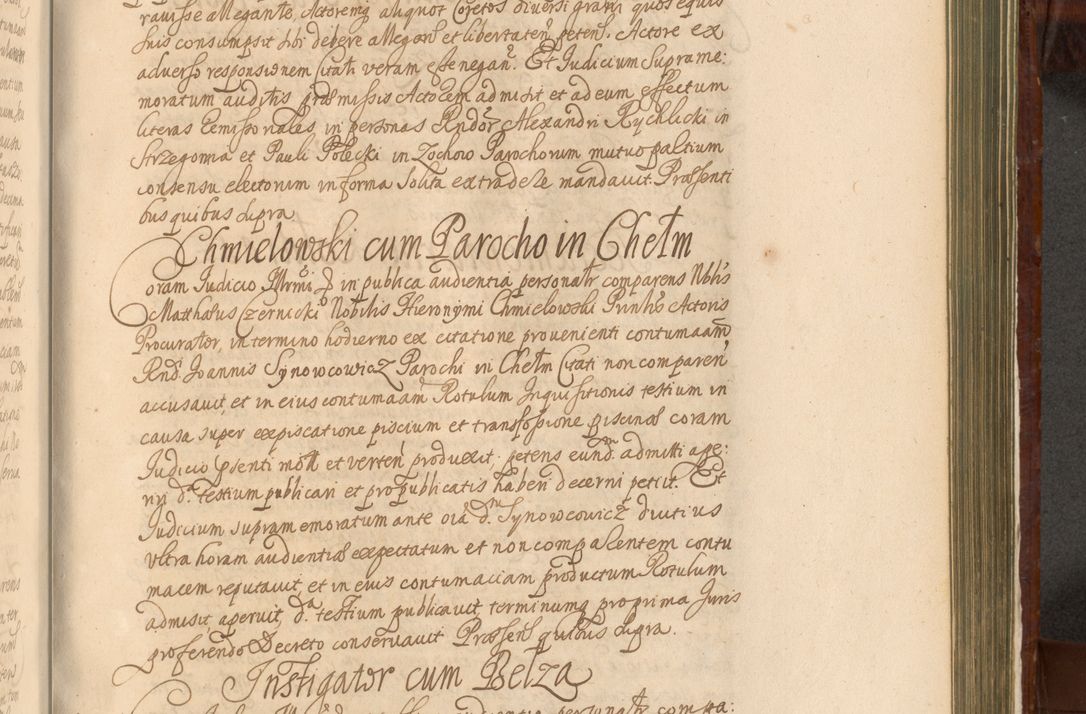 ravisse allegante, Actoremq aliquot Coretos diversi gratii quos equis
suis consumpsit sibi debere allegan et libertaten peten. Actore ex
adverso responsionem Citati veram esse negan. Et Judicium suprame:
moratum auditis præmissis Actorem admisit et ad eum effectum
literas remissoriales in personas Rndor Alexandri Rychlicki in
Strzegomia et Pauli Polecki in Zochow Parochorum mutuo partium
consensu electorum in forma solita extradere mandavit. Præsenti
bus quibus supra
Chmielowski cum Parocho in Chełm
Coram Judicio Illrmi D in publica audientia personatr comparens Noblis
Matthæus Czernicki Nobilis Hieronymi Chmielowski Prinlis Actoris
Procurator, in termino hodierno ex citatione provenienti contumaam
Rnd. Joannis Synowcowicz Parochi in Chełm Citati non comparen
accusavit et in eius contumaam Rotulum Inquisitionis testium in
causa super expiscatione piscium et transfossione piscinæ coram
Judicio psenti mott et verten produxit, petens eund admitti ape:
riri da testium publicari et pro publicatis haberi decerni petiit. Et
Judicium supramemoratum ante oia dm Synowcowicz diutius
ultra horam audientiæ expectatum et non comparentem contu
macem reputavit, et in eius contumaciam productum Rotulum
admisit aperuit, da testium publicavit, terminumq pro prima Juris
proferendo Decreto conservavit Præsen quibus supra.
Instigator cum Bełza